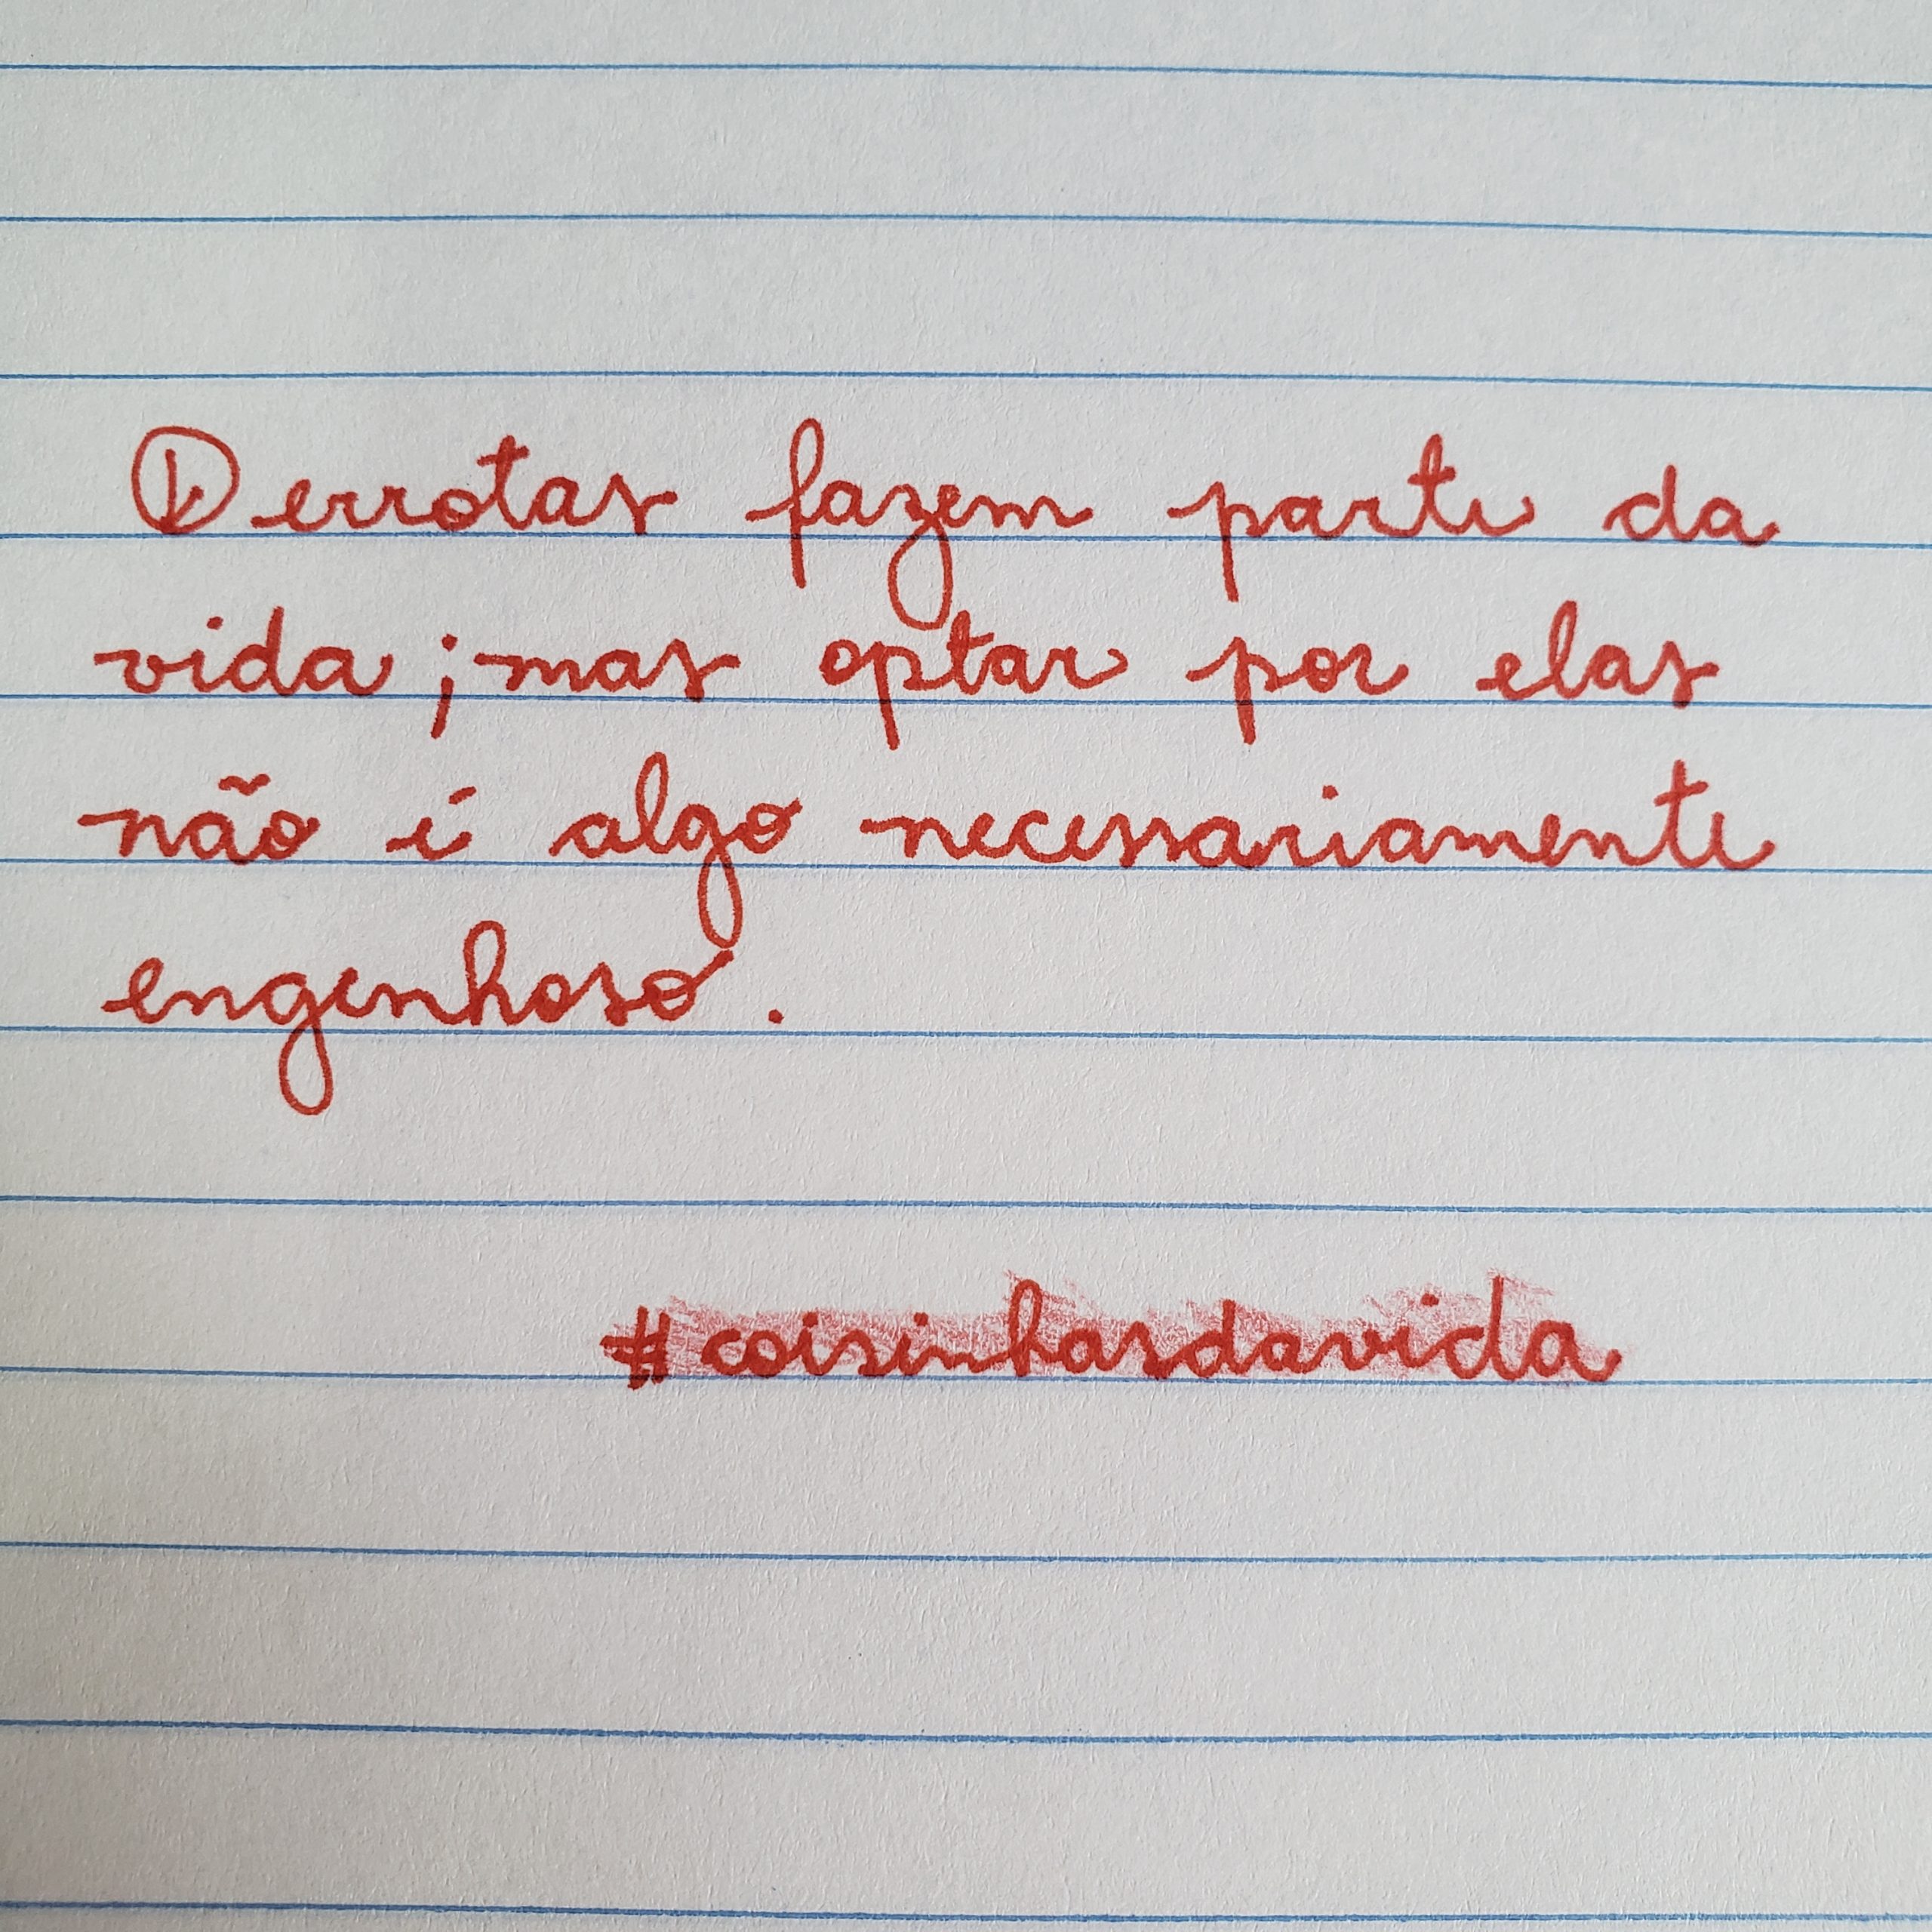 Derrotas fazem parte da
vida; mas optar por elas
não é algo necessariamente
engenhoso.
#coisinhasdavida